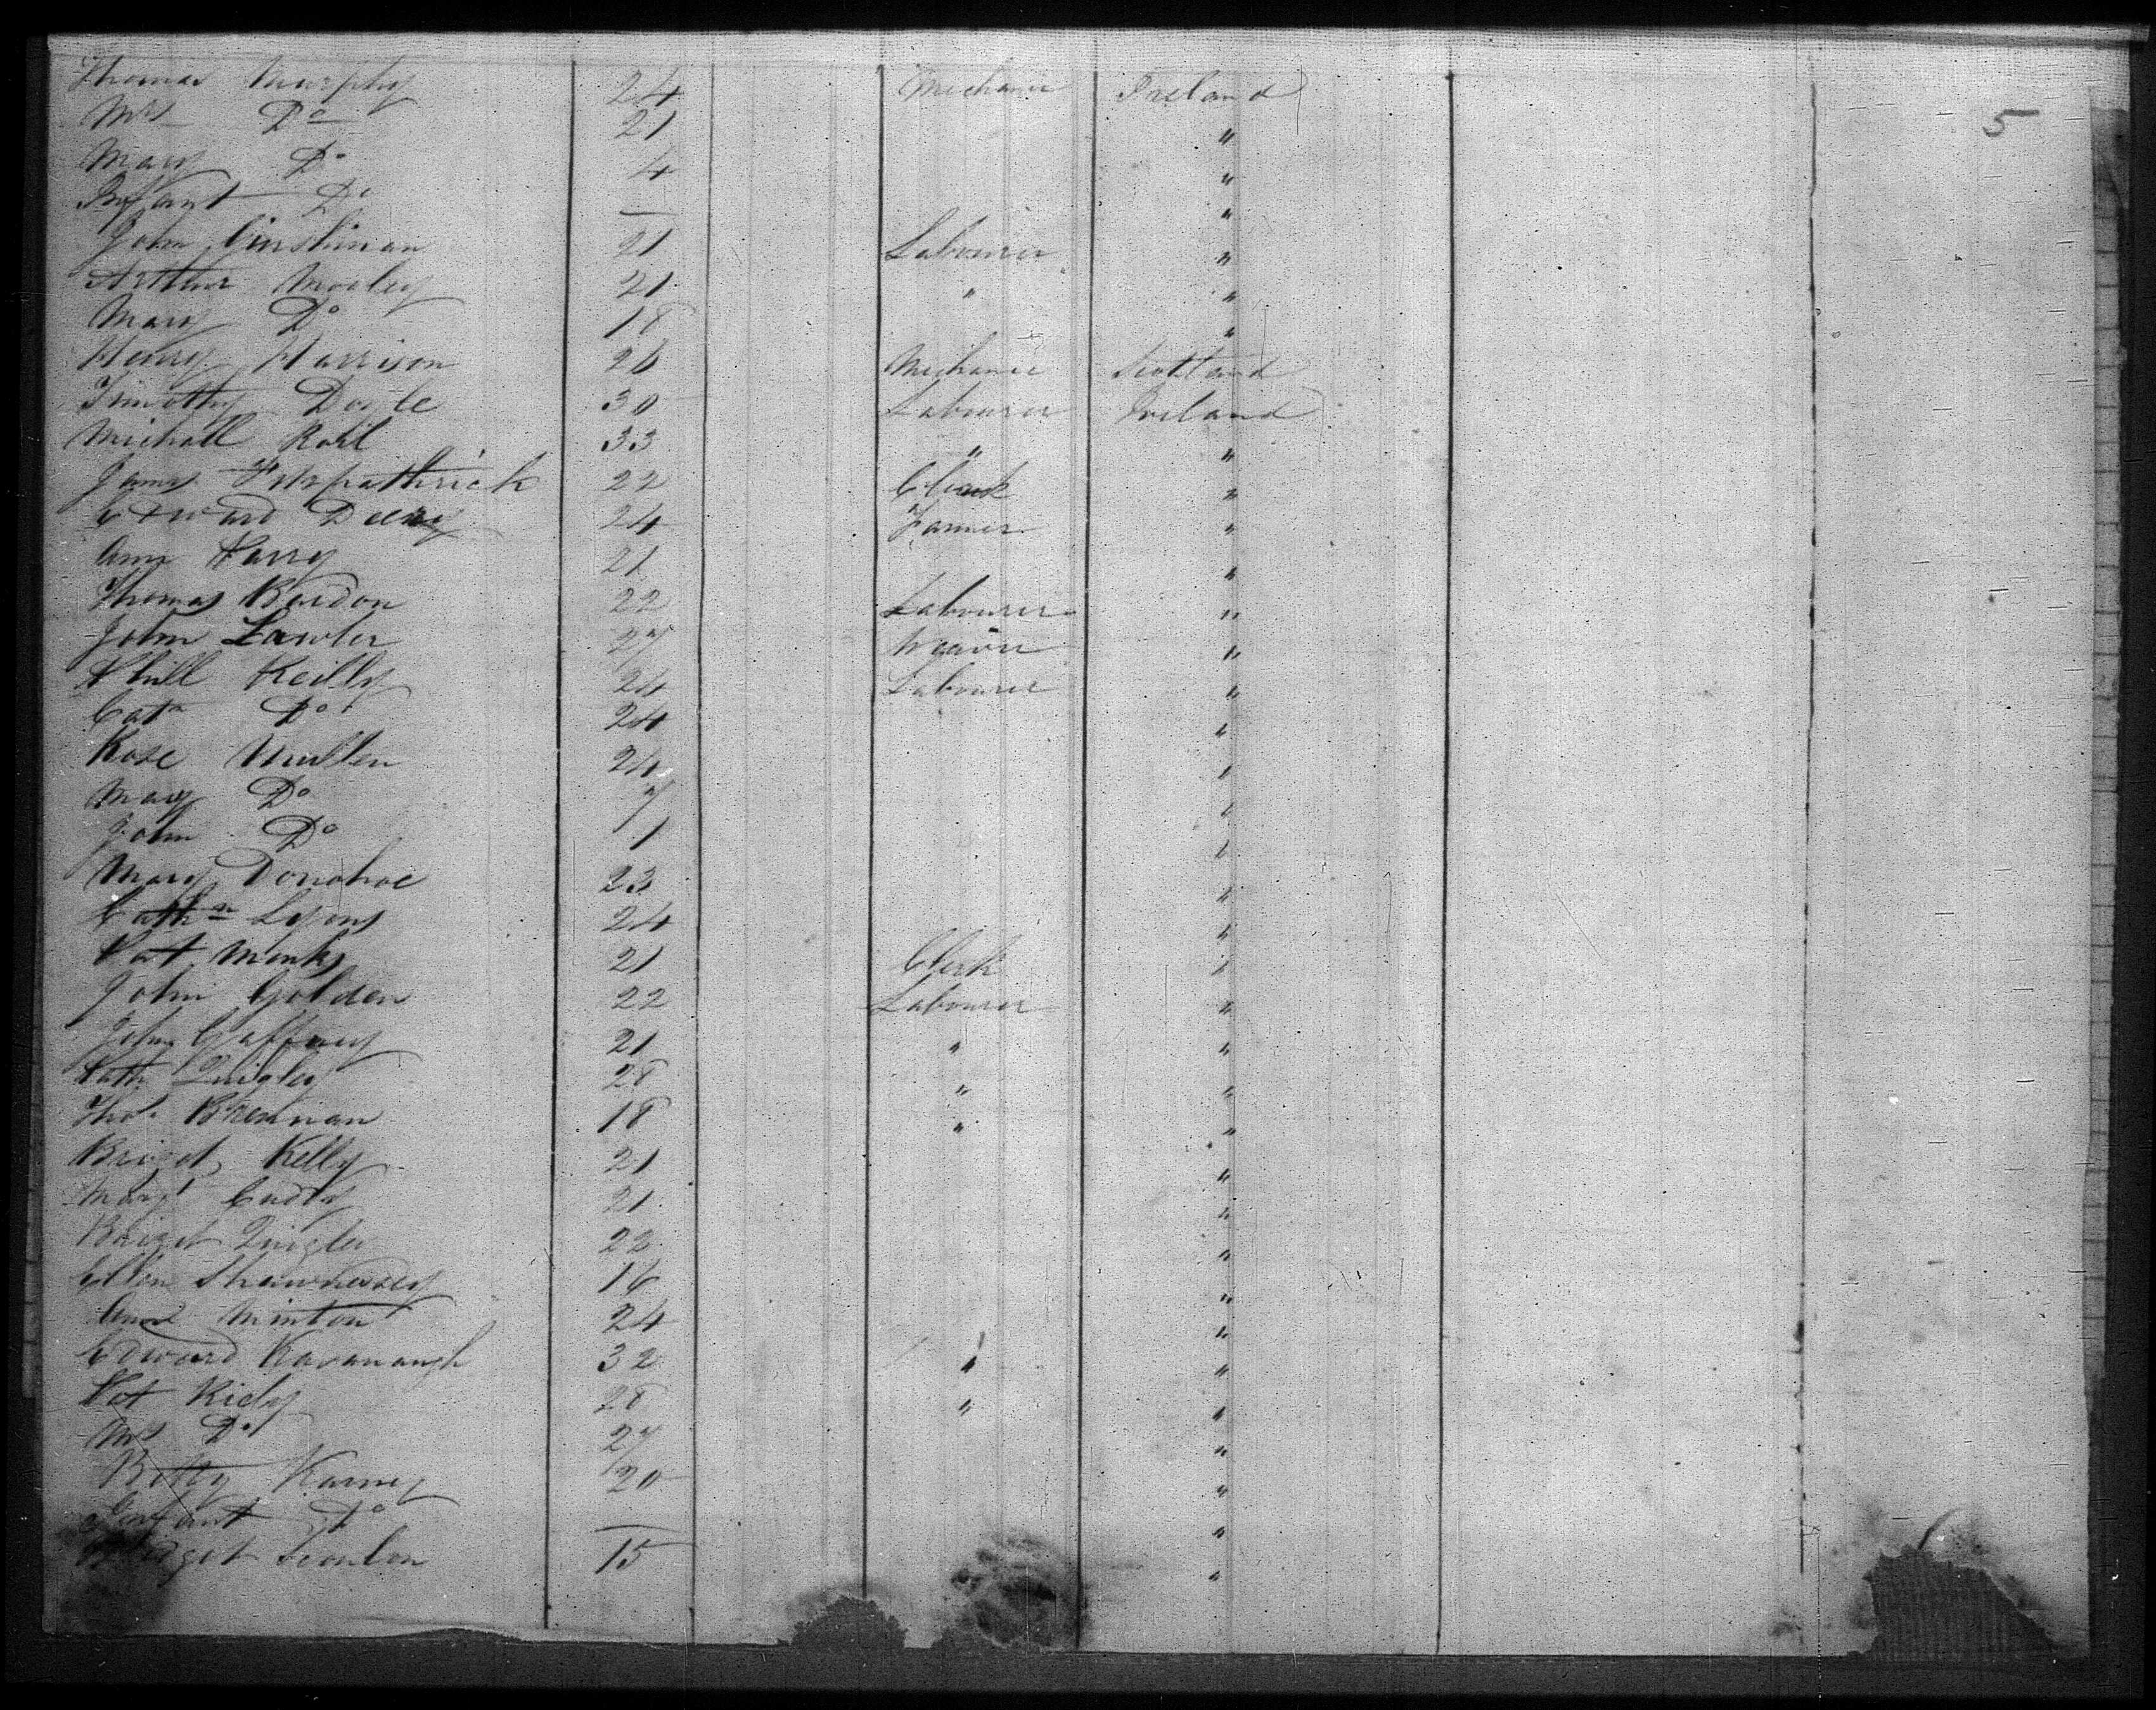 Thomas Murphy 24 Mechanic Ireland
Mrs Do 21 " 5
Mary Do 4 "
Infant Do — "
John 21 Labourer "
Arthur Morley 21 " "
Mary Do 18 "
Henry Harrison 26 Mechanic Scotland
Timothy Doyle 30 Labourer Ireland
Michall 33 " "
James Fitzpathrick 22 Clerk "
Edward Deery 24 Farmer "
Ann Harry 21 "
Thomas Bardon 22 Labourer "
John Lawler 27 Weaver "
Phill Reilly 24 Labourer "
Cath Do 24 "
Rose Mullen 24 "
Mary Do 7 "
John Do 1 "
Mary Donohoe 23 "
Cathn Lyons 24 "
Pat Monks 21 Clerk "
John Golden 22 Labourer "
John Gaffney 21 " "
Path Quigley 28 " "
Thos Brennan 18 " "
Briget Kelly 21 "
Margt 21 "
Briget Quigley 22 "
Ellen Shawnessey 16 "
Anne Minton 24 "
Edward Kavanaugh 32 " "
Pat Riely 28 " "
Mrs Do 27 "
Betty Karney 20 "
Infant Do — "
Bridget Scanlon 15 "